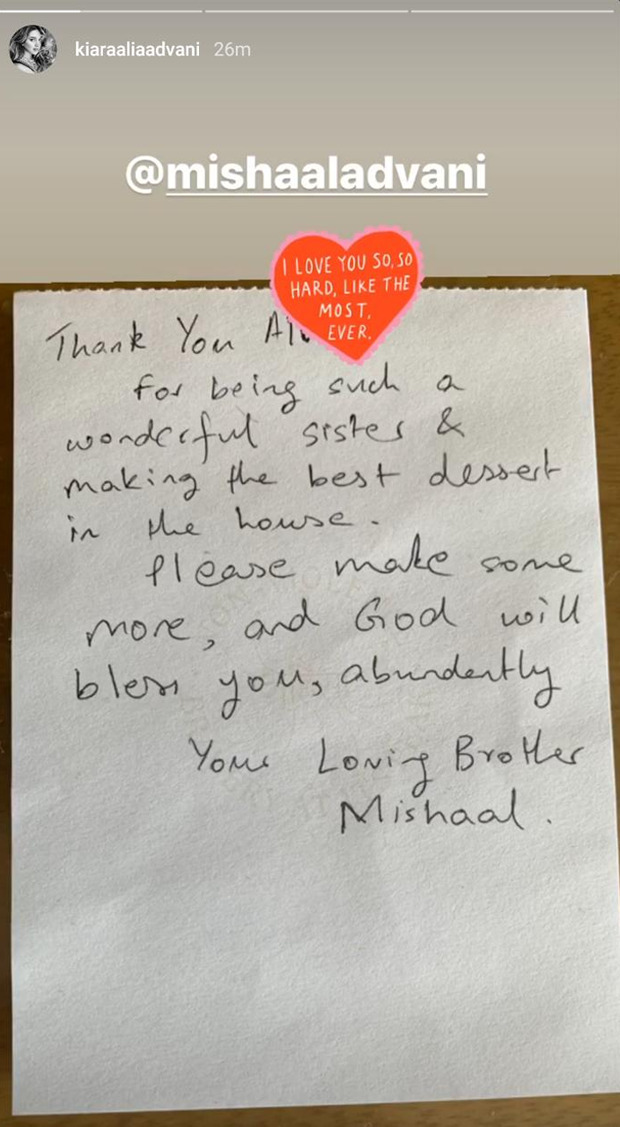 kiaraaliaadvani 26m
@mishaaladvani
I LOVE YOU SO, SO
HARD, LIKE THE
MOST,
EVER.
Thank You
for being such a
wonderful sister &
making the best dessert
in the house.
Please make some
more, and God will
bless you, abundently
Your Loving Brother
Mishaal.